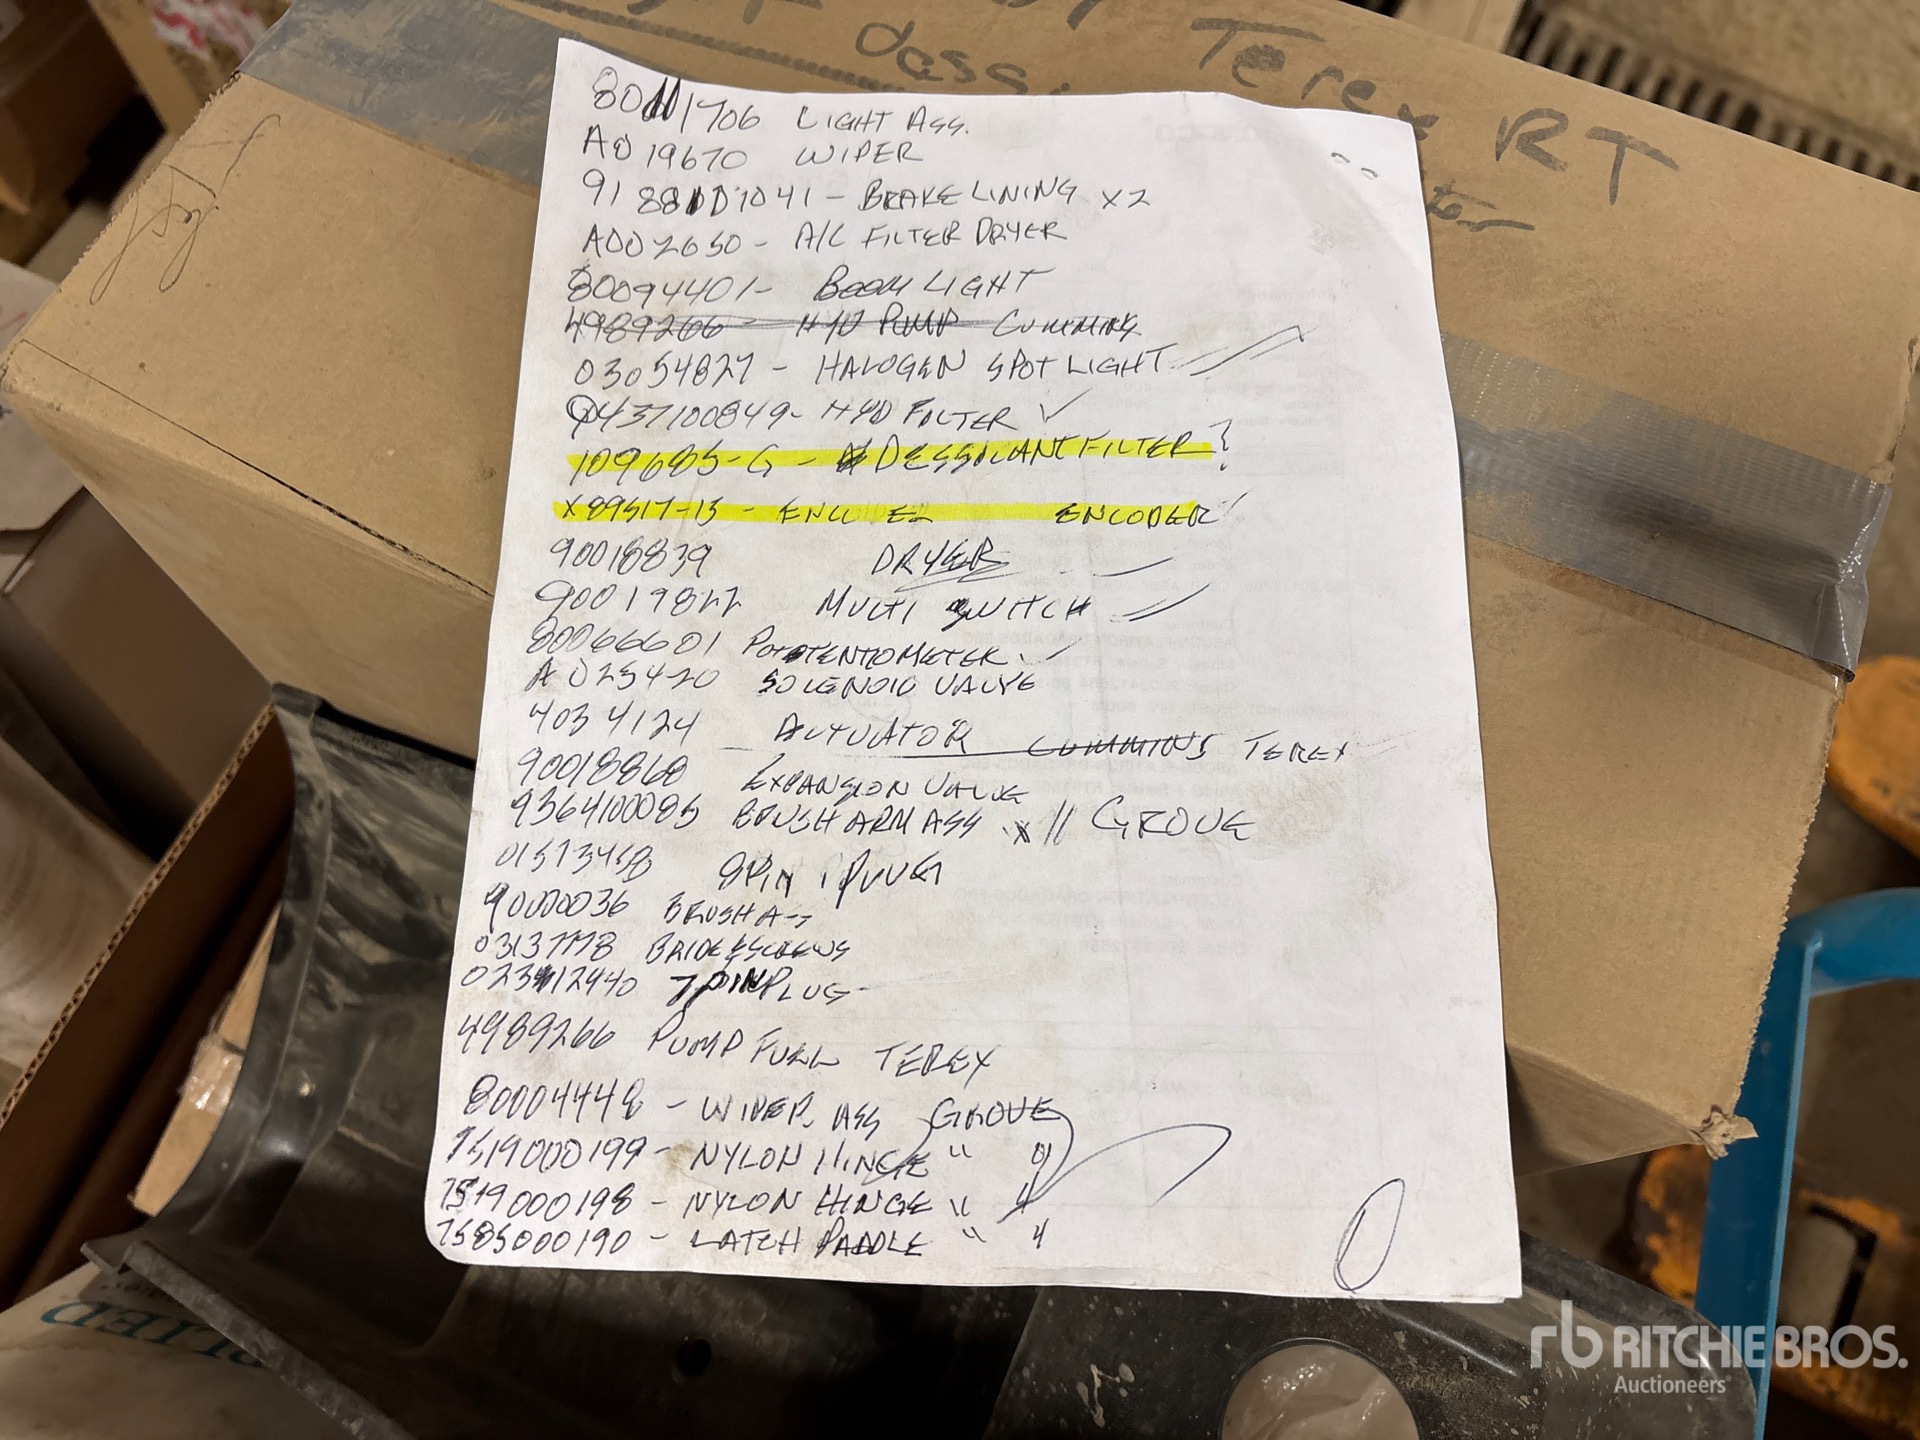 Terex RT
80111706 LIGHT ASS.
A019670 WIPER
91 88007041 - BRAKE LINING X2
A002650 - A/C FILTER DRYER
80094401 - BOOM LIGHT
4989266 - HYD PUMP CUMMINS
03054827 - HALOGEN SPOT LIGHT
9437100849 - HYD FILTER ✓
109685-G - DESSICANT FILTER ?
X89517-15 - ENCODER
90018839 DRYER
90019822 MULTI SWITCH
80066601 POTOTENTIOMETER
A025420 SOLENOID VALVE
4034124 ACTUATOR CUMMINS TEREX
90018860 EXPANSION VALVE
9364100085 BRUSH ARM ASS x 11 GROVE
PIN PLUG
90000036 BRUSH ASS
03137778 BRIDGE SCREWS
PIN PLUG
4989266 PUMP FUEL TEREX
80004448 - WIPER ASS GROVE
7519000199 - NYLON HINGE "
7519000198 - NYLON HINGE " 4
7585000190 - LATCH PADDLE " 4
rb RITCHIE BROS.
Auctioneers